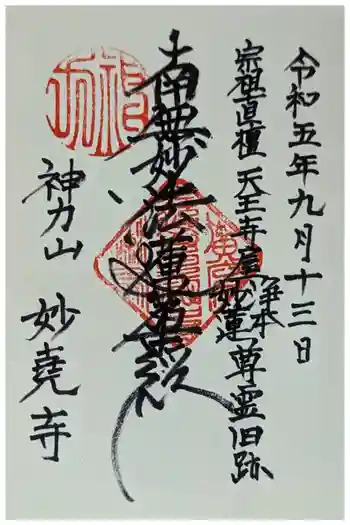 令和五年九月十三日
宗祖直檀天王寺屋浄本
妙蓮尊霊旧跡
南無妙法蓮華経
神力山 妙堯寺